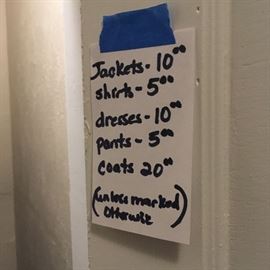 Jackets - 10⁰⁰
shirts - 5⁰⁰
dresses - 10⁰⁰
pants - 5⁰⁰
Coats 20⁰⁰
(unless marked
Otherwise)